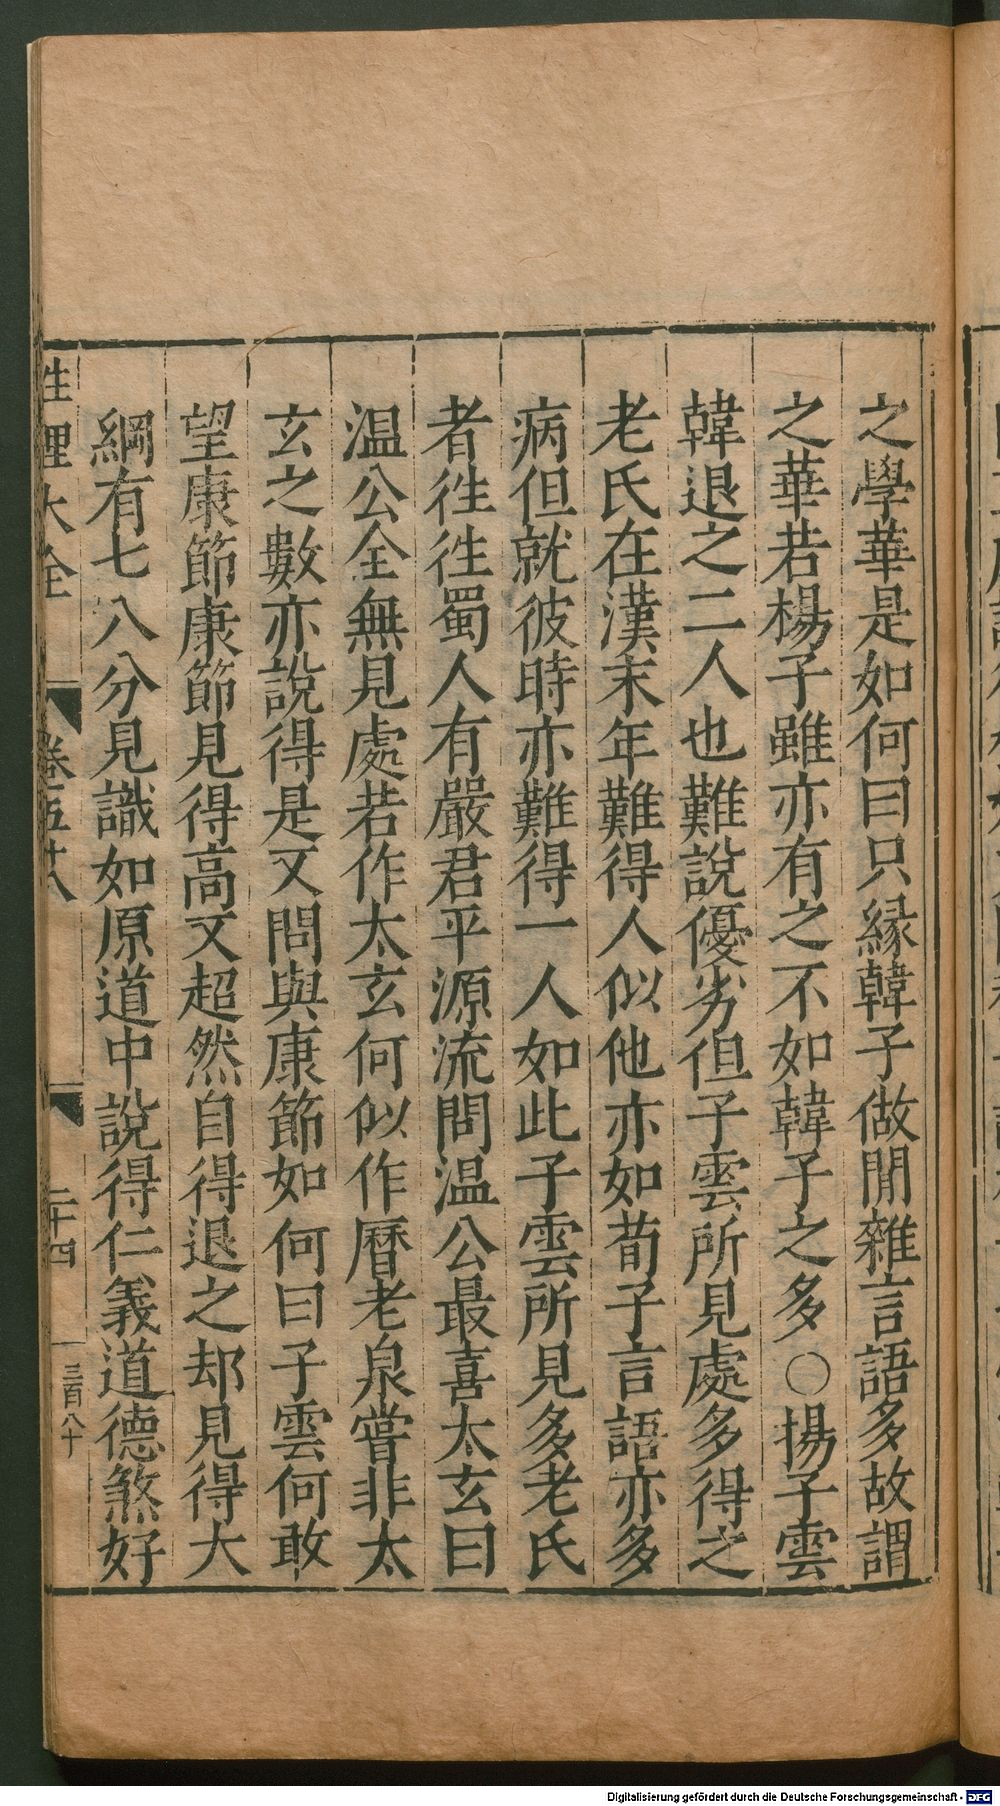 之學華是如何曰只縁韓子做閒雜言語多故謂
之華若楊子雖亦有之不如韓子之多○揚子雲
韓退之二人也難說優劣但子雲所見處多得之
老氏在漢末年難得人似他亦如荀子言語亦多
病但就彼時亦難得一人如此子雲所見多老氏
者徃徃蜀人有嚴君平源流問温公最喜太玄曰
温公全無見處若作太玄何似作曆老泉嘗非太
玄之數亦說得是又問與康節如何曰子雲何敢
望康節康節見得高又超然自得退之却見得大
綱有七八分見識如原道中說得仁義道德煞好
性理大全 卷五十八 二十四 三百八十
Digitalisierung gefördert durch die Deutsche Forschungsgemeinschaft - DFG